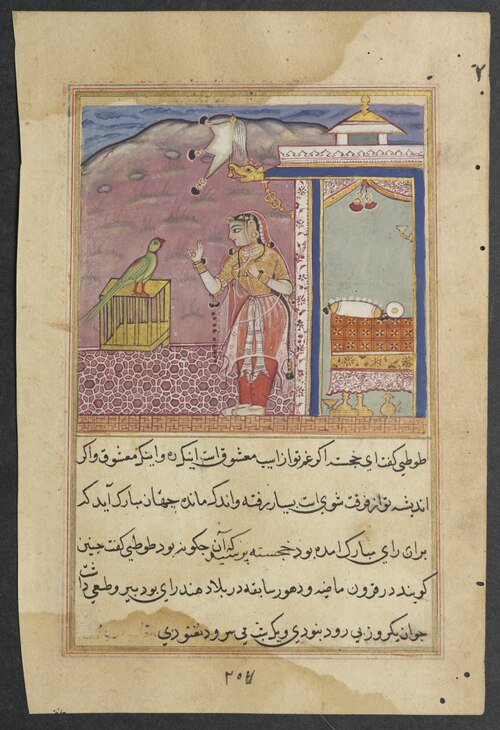 طوطی کفت ای خجسته اکر غم تو از اسب معشوق است اینک ره و اینک معشوق و اکر
اندیشه تو از فوت شوی است بسیار رفته و اندک مانده چهان مبارک آید که
بران رای مبارک امده بود خجسته پرسید که آن چکونه بود طوطی کفت چنین
کویند در قرون ماضیه و دهور سابقه در بلاد هند رای بود پیر و طبعی داشت
جوان یکروز بی رود نبودی و یک شب بی سرود نغنودی